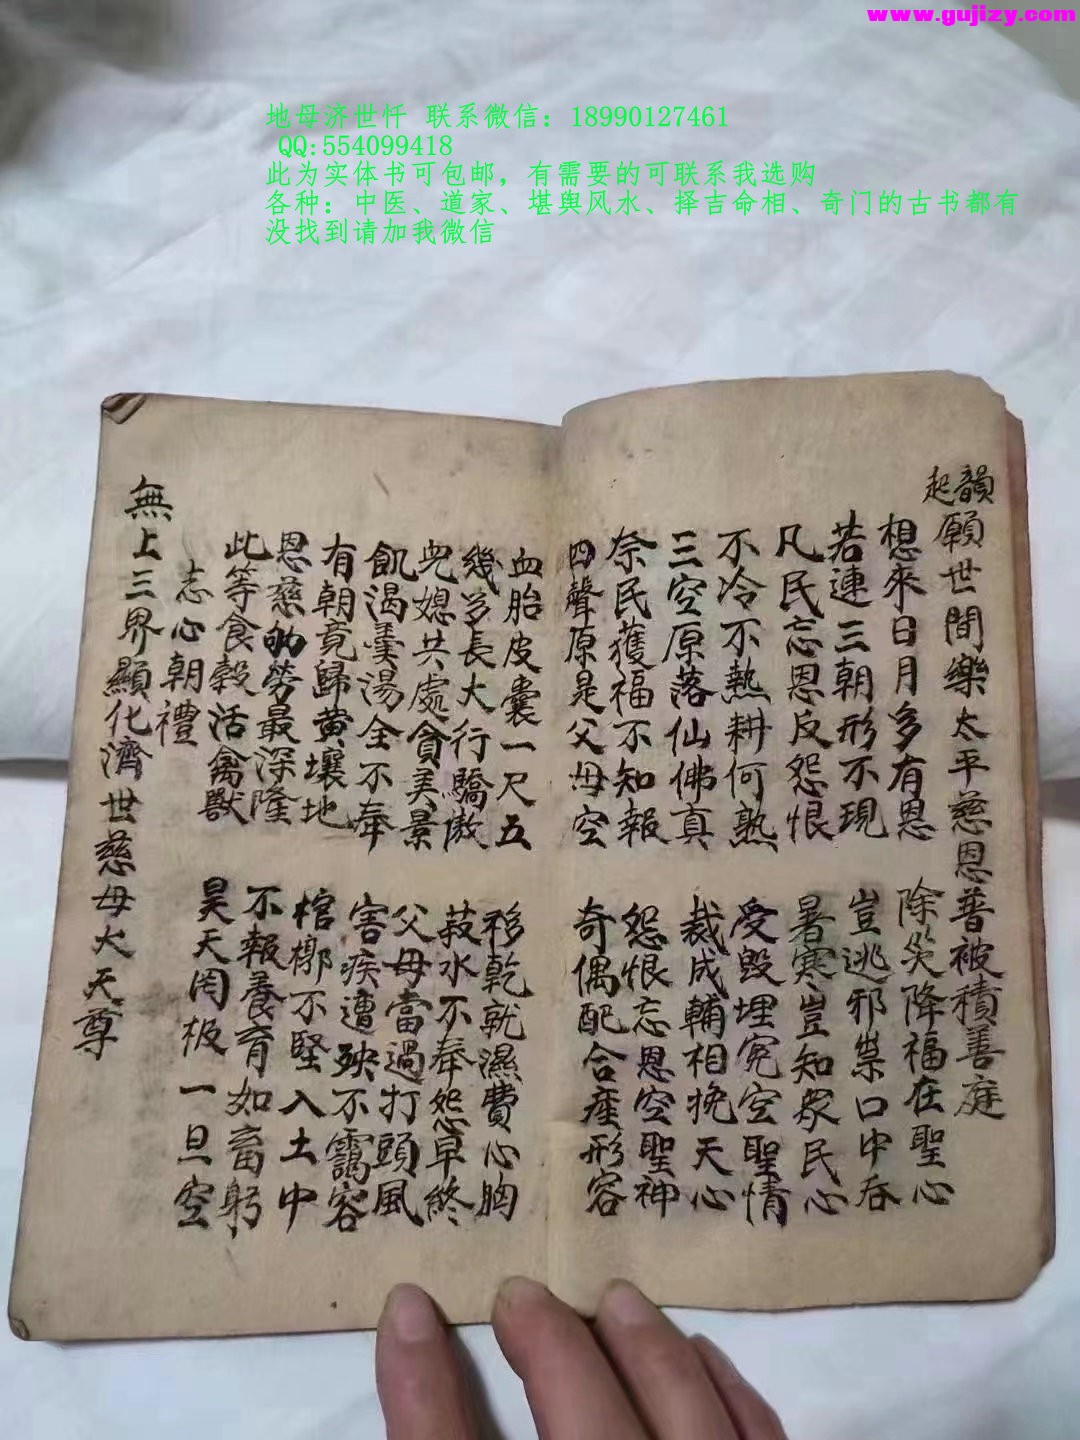 www.gujizy.com
地母济世忏 联系微信：18990127461
QQ:554099418
此为实体书可包邮，有需要的可联系我选购
各种：中医、道家、堪舆风水、择吉命相、奇门的古书都有
没找到请加我微信
韻起
願世間樂太平慈恩普被積善庭
想來日月多有恩 除災降福在聖心
若連三朝形不現 豈逃邪祟口中吞
凡民忘恩反怨恨 暑寒豈知眾民心
不冷不熱耕何熟 受毀埋冤空聖情
三空原落仙佛真 裁成輔相挽天心
奈民獲福不知報 怨恨忘恩空聖神
四聲原是父母空 奇偶配合產形容
血胎皮囊一尺五 移乾就濕費心胸
幾多長大行驕傲 菽水不奉怨早終
兒媳共處貪美景 父母當過打頭風
飢渴羹湯全不奉 害疾遭殃不靄容
有朝竟歸黄壤地 棺槨不堅入土中
恩慈劬勞最深隆 不報養育如畜躬
此等食穀活禽獸 昊天罔极一旦空
志心朝禮
無上三界顯化濟世慈母大天尊